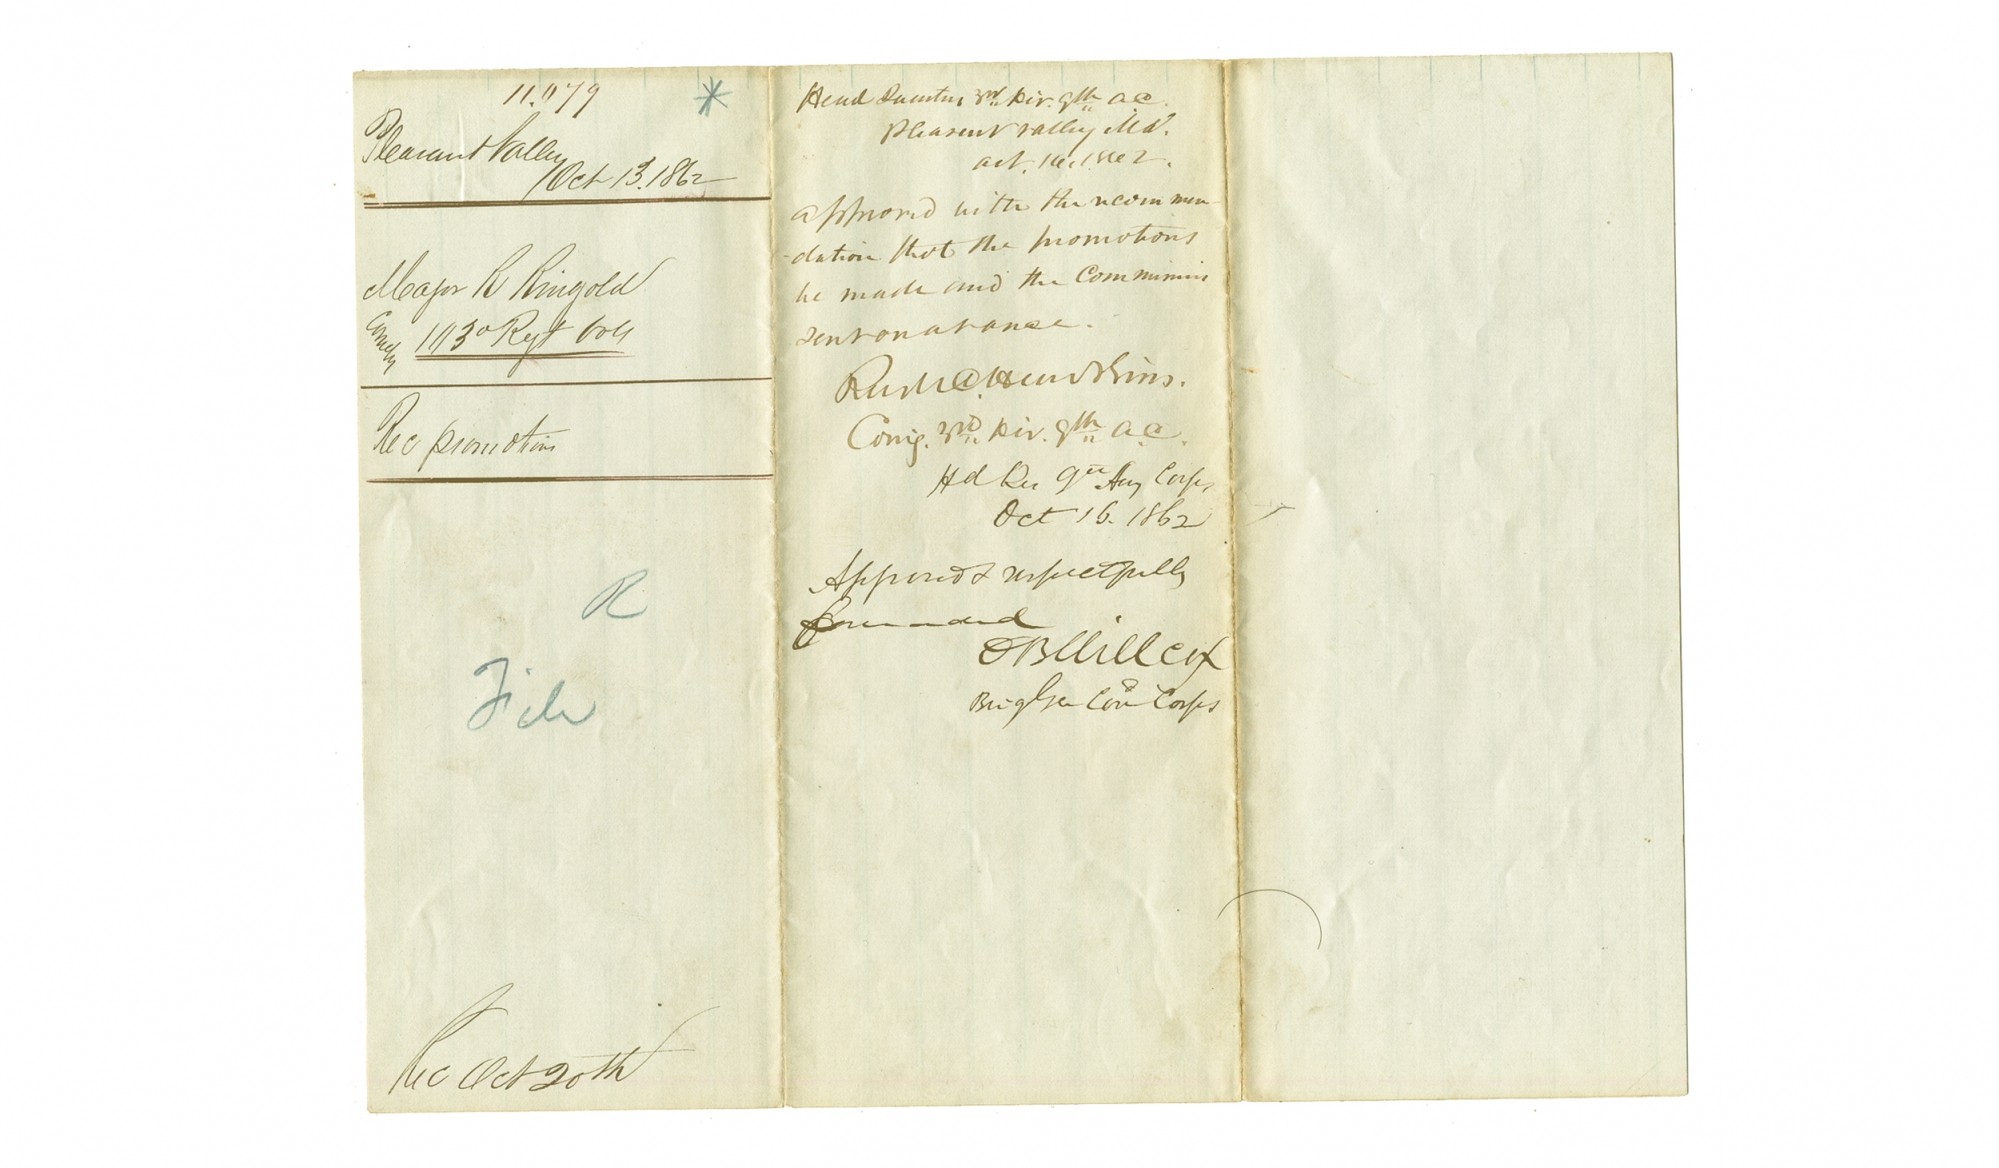 11.179
Pleasant Valley
Oct 13. 1862
Major R Ringold
Comdg 103º Regt Vols
Rec promotions
R
File
Rec Oct 20th
Head Quarters 3rd Div. 9th A.C.
Pleasent Valley Md.
Oct. 1862.
approved with the recommen-
-dation that the promotions
be made and the Commissions
sent on at once.
Rush C. Hawkins.
Comg. 3rd Div. 9th A.C.
Hd Qrs 9th Army Corps
Oct 16. 1862
Approved & respectfully
forwarded
O B Willcox
Brig Gen Com Corps